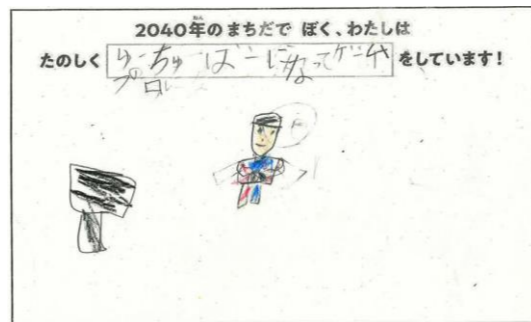 2040年のまちだで ぼく、わたしは
ねん
たのしく ゆーちゅーばーになってゲーム をしています!
プロ